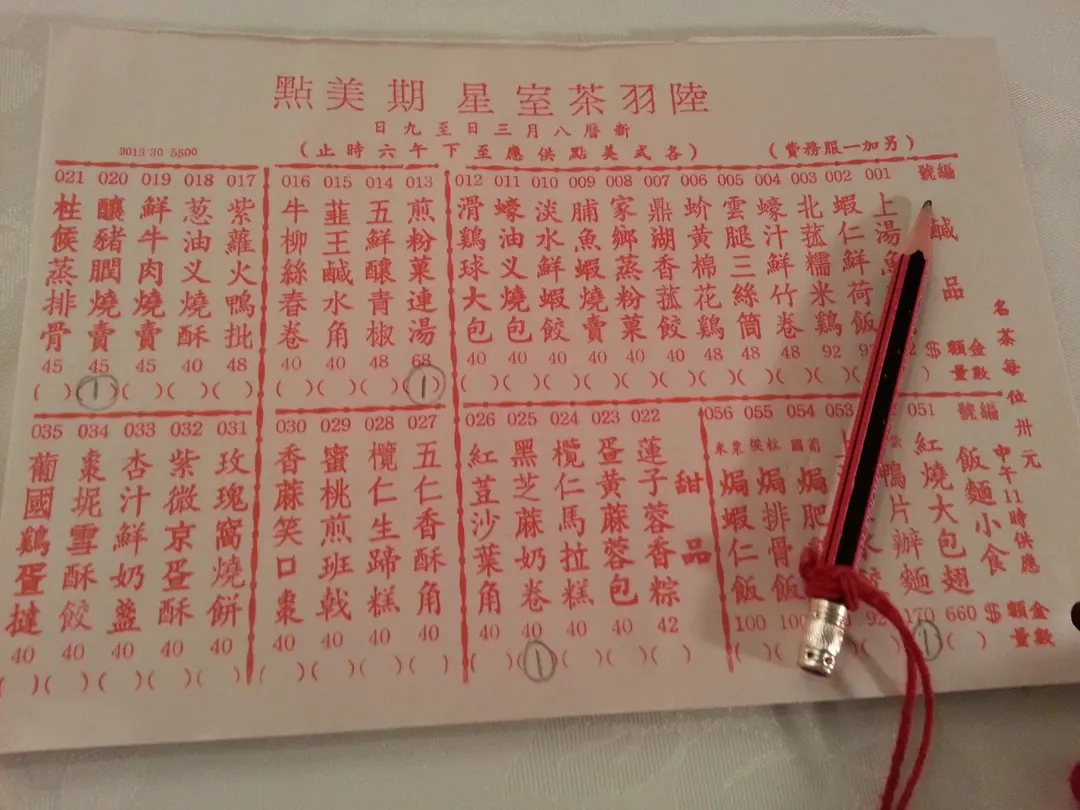 陸羽茶室星期美點
新曆八月三日至九日
(另加一服務費)
(各式美點供應至下午六時止)
2013 30 5500
名茶每位卅元
編號
鹹品
金額$
數量
001 上湯
002 蝦仁鮮荷飯
003 北菰糯米鷄 92
004 蠔汁鮮竹卷 48
005 雲腿三絲筒 48
006 蚧黄棉花鷄 48
007 鼎湖香菰餃 40
008 家鄉蒸粉菓 40
009 脯魚蝦燒賣 40
010 淡水鮮蝦餃 40
011 蠔油义燒包 40
012 滑鷄球大包 40
013 煎粉菓連湯 68 (1)
014 五鮮釀青椒 48
015 韮王鹹水角 40
016 牛柳絲春卷 40
017 紫蘿火鴨批 48
018 葱油义燒酥 40
019 鮮牛肉燒賣 45
020 釀豬膶燒賣 45 (1)
021 柱侯蒸排骨 45
編號
飯麵小食
中午11時供應
金額$
數量
紅燒大包翅 660
051 鴨片辦麵 170 (1)
92
053
054 葡國焗肥
055 柱侯焗排骨飯
056 粟米焗蝦仁飯 100
甜品
022 蓮子蓉香粽 42
023 蛋黄蔴蓉包 40
024 欖仁馬拉糕 40
025 黑芝蔴奶卷 40 (1)
026 紅荳沙葉角 40
027 五仁香酥角 40
028 欖仁生蹄糕 40
029 蜜桃煎班戟 40
030 香蔴笑口棗 40
031 玫瑰窩燒餅 40
032 紫微京蛋酥 40
033 杏汁鮮奶盞 40
034 棗坭雪酥餃 40
035 葡國鷄蛋撻 40